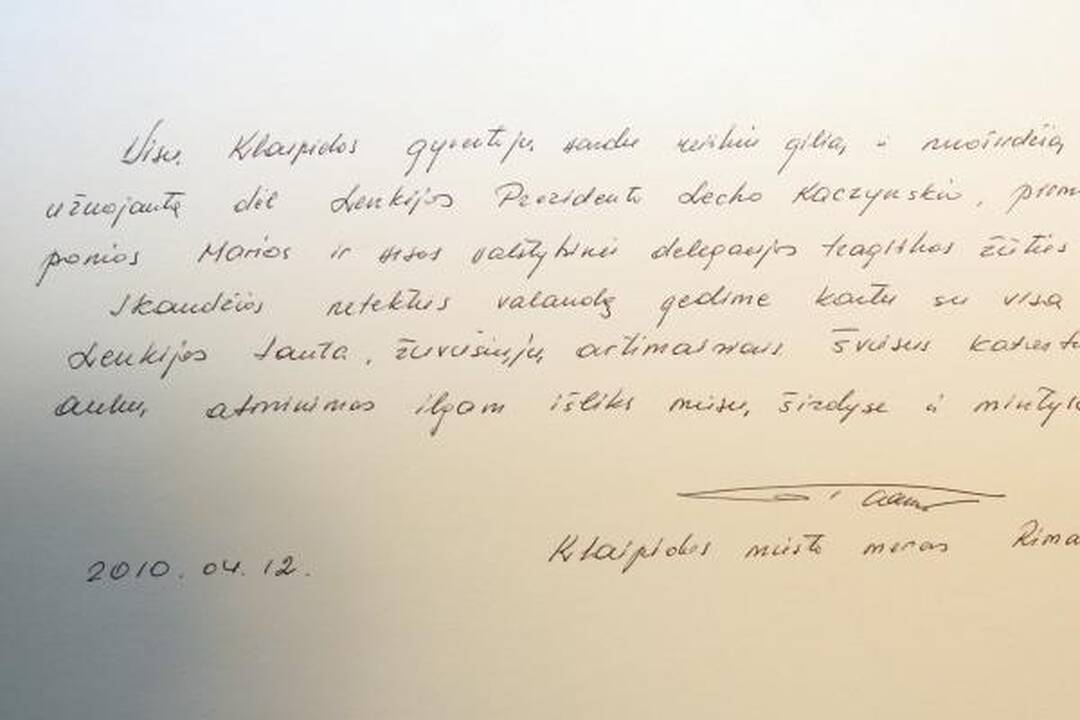 Visų Klaipėdos gyventojų vardu reiškiu gilią ir nuoširdžią
užuojautą dėl Lenkijos Prezidento Lecho Kaczynskio,
ponios Marios ir visos valstybinės delegacijos tragiškos žūties
Skaudžios netekties valandą gedime kartu su visa
Lenkijos tauta, žuvusiųjų artimaisiais. Šviesus
aukų atminimas ilgam išliks mūsų širdyse ir
2010.04.12.
Klaipėdos miesto meras